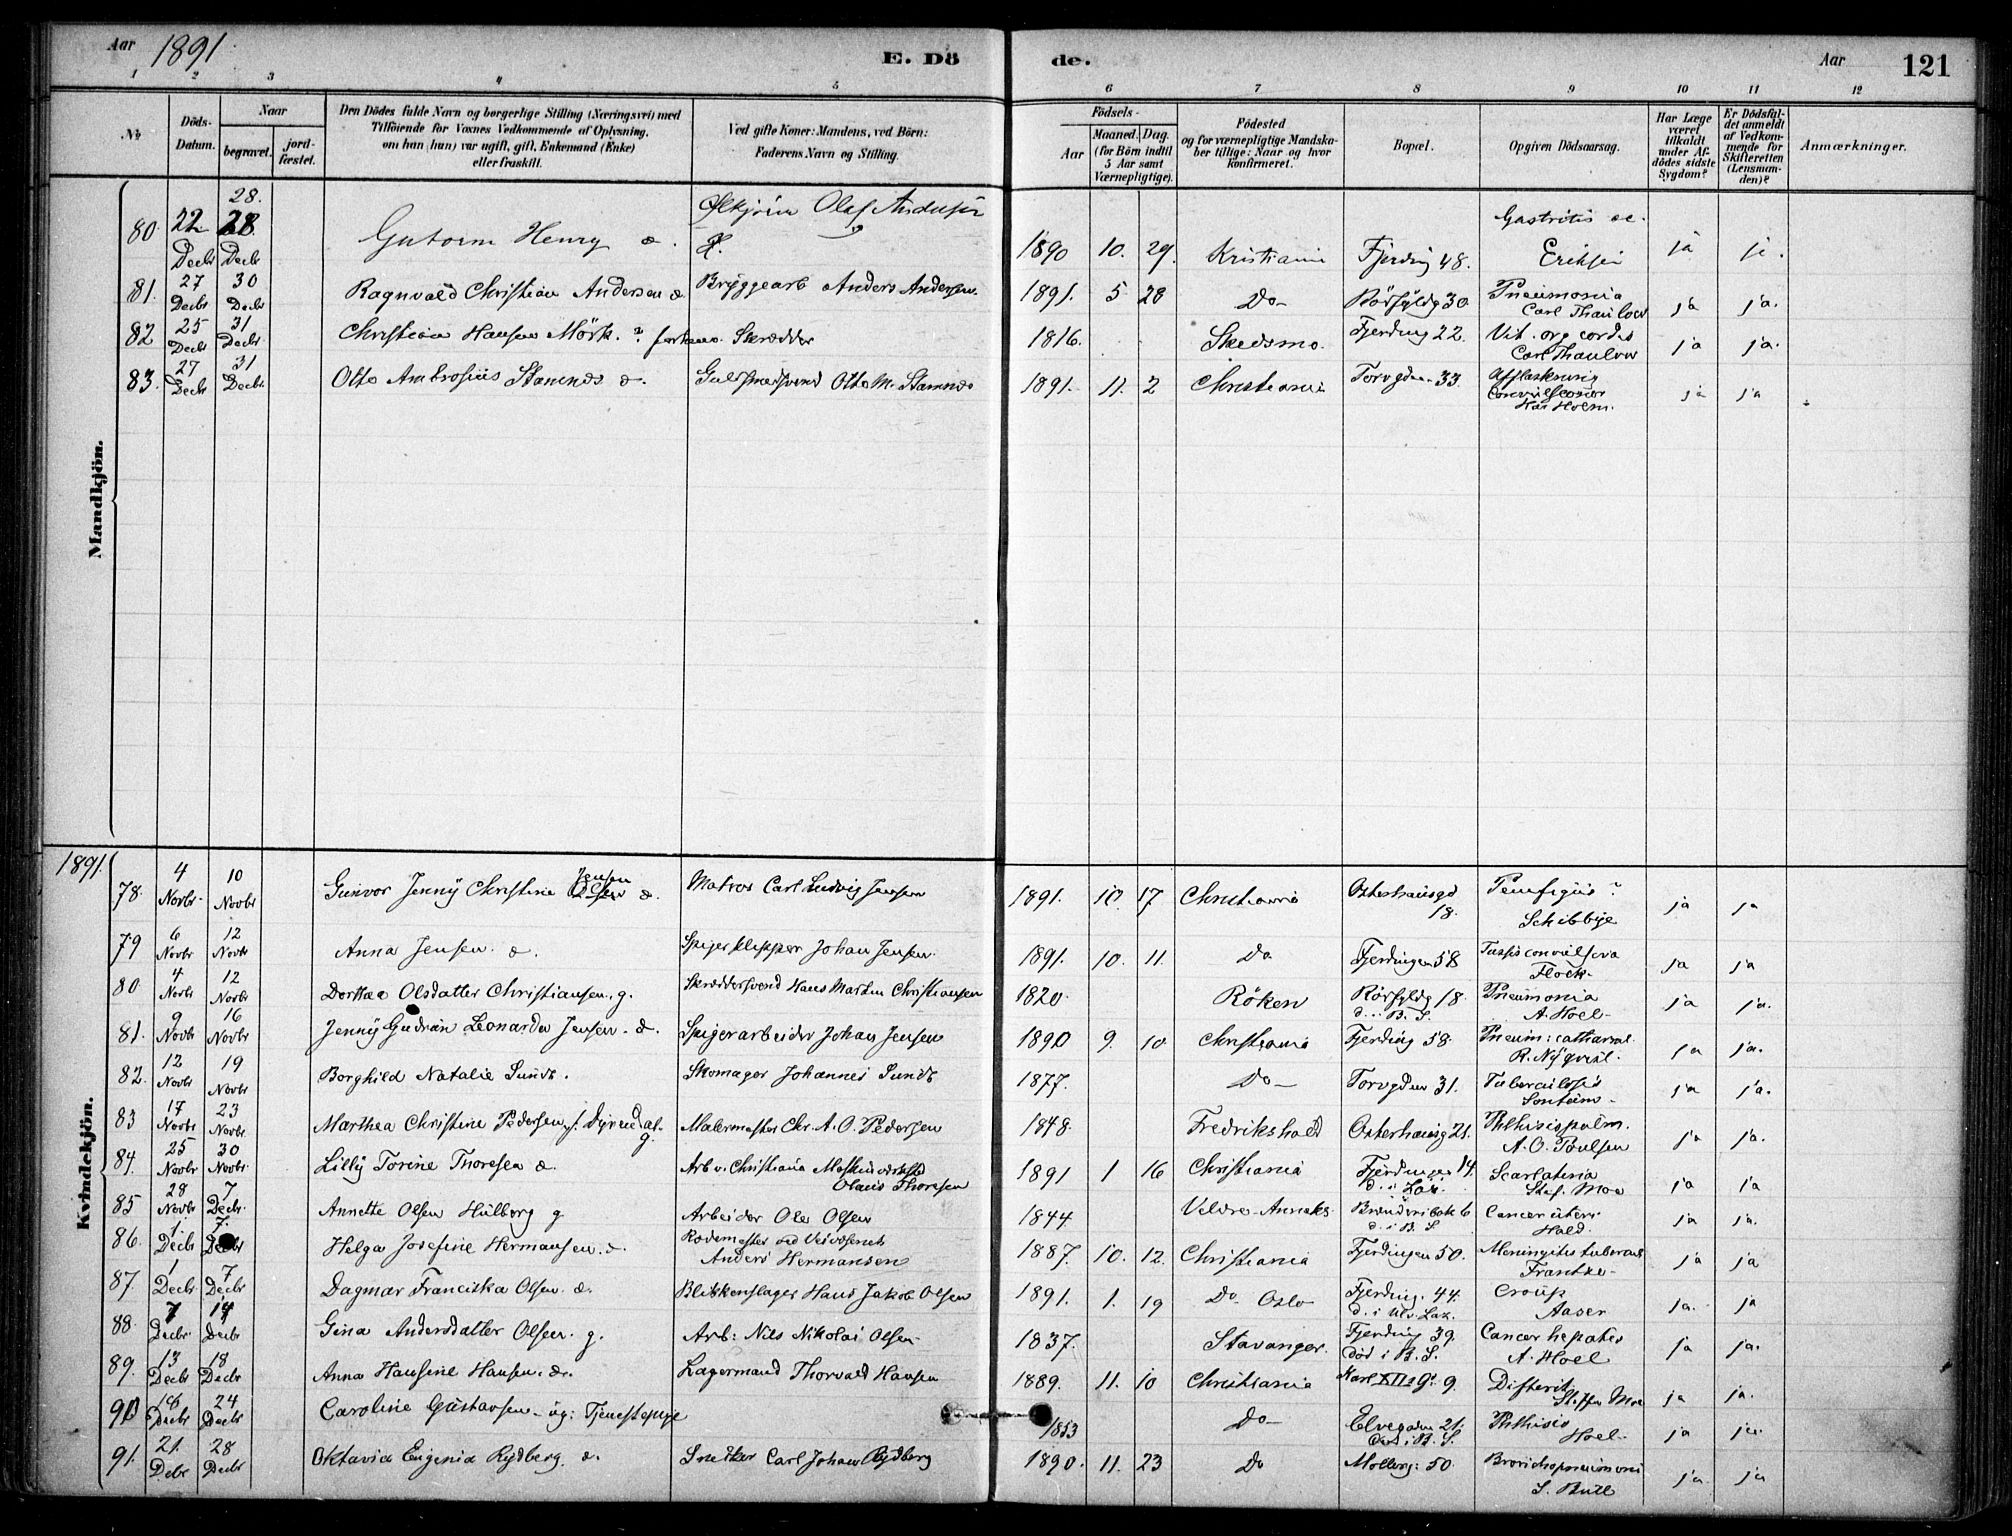 Aar 1891 E. Dö de. Aar 121
1 2 3 4 5 6 7 8 9 10 11 12
No
Döds-Datum.
Naar
begravet.
jord-fæstet.
Den Dödes fulde Navn og borgerlige Stilling (Næringsvei) med
Tilföiende for Voxnes Vedkommende af Oplysning,
om han (hun) var ugift, gift, Enkemand (Enke)
eller fraskilt.
Ved gifte Koner: Mandens, ved Börn:
Faderens Navn og Stilling.
Födsels-
Aar
Maaned. Dag.
(for Börn indtil
5 Aar samt
Værnepligtige).
Födested
og for værnepligtige Mandska-
ber tillige: Naar og hvor
konfirmeret.
Bopæl.
Opgiven Dödsaarsag.
Har Læge
været
tilkaldt
under Af-
dödes sidste
Sygdom?
Er Dödsfal-
det anmeldt
af Vedkom-
mende for
Skifteretten
(Lensman-
den)?
Anmærkninger.
Mandkjön.
80 22 Decbr 28. 28 Decbr Gutorm Henry d. Olaf Andersen 1890 10. 29. Kristiania Fjerding 48. Gastritis ac. Eriksen ja ja.
81. 27 Decbr 30 Decbr Ragnvald Christian Andersen d. Bryggearb Anders Andersen. 1891. 5 28 Do Rörfyldg 30 Pneumonia Carl Thaulow ja ja.
82 25 Decbr 31 Decbr. Christian Hansen Mörk. ? Skrædder 1816. Skedsmo. Fjerding 22. Vit. org cordis Carl Thaulow ja ja.
83. 27 Decbr 31 Decbr. Otto Ambrosius Stamnæs d. Guldsmedsvend Otto M. Stamnæs 1891. 11. 2 Christiania Torvgden 33. Convulsioner Holm. ja ja
Kvindekjön.
1891.
78. 4 Novbr 10 Novbr Gunvor Jenny Christine Jensen d. Matros Carl Ludvig Jensen 1891. 10. 17 Christiania Osterhausgd 18. Pemfigus ? Schibbye ja ja
79 6 Novbr 12 Novbr Anna Jensen. d. Spigerklipper Johan Jensen. 1891. 10. 11. Do Fjerdingen 58 Tussis convulsiva Flock ja ja
80. 4 Novbr 12 Novbr Dorthea Olsdatter Christiansen. g. Skræddersvend Hans Martin Christiansen 1820. Röken Rörfyldg 18. d. i B. S. Pneumonia A. Hoel ja ja.
81. 9 Novbr 16 Novbr Jenny Gudrun Leonarda Jensen. d. Spigerarbeider Johan Jensen 1890 9. 10 Christiania Fjerding 58. Pneum: catharral. R. Nyqvist. ja ja.
82. 12 Novbr 19 Novbr Borghild Natalie Sundt. Skomager Johannes Sundt 1877. Do Torvgden 31. Tuberculosis Sontum ja ja.
83 17 Novbr 23 Novbr. Marthea Christine Pedersen f. Dyrendal g. Malermester Chr. A. O. Pedersen 1848. Fredrikshald Osterhausg 21. Phthisis pulm. A. O. Poulsen ja ja.
84. 25 Novbr 30 Novbr. Lilly Torine Thoresen d. Arb v. Christiania Mek værksted Olaus Thoresen 1891 1 16 Christiania Fjerdingen 14. d. i Laz. Scarlatina Stef. Moe ja ja
85 28 Novbr 7 Decbr. Annette Olsen Hulberg g Arbeider Ole Olsen 1844 Veldre Anneks d. i B. S. Cancer uteri Hald. ja ja.
86. 1 Decbr 7. Decbr Helga Josefine Hermansen. d. Rodemester ved Veivæsenet Anders Hermansen 1887. 10. 12. Christiania Fjerdingen 50. Meningitis tubercul Frantze ja ja
87. 1 Decbr 7 Decbr Dagmar Franciska Olsen. d. Blikkenslager Hans Jakob Olsen 1891. 1. 19 Do Oslo Fjerding. 44. d. i Ulv. Laz. Croup Aaser ja. ja
88. 7 Decbr. 14 Decbr Gina Andersdatter Olsen. g. Arb: Nils Nikolai Olsen 1837. Stavanger. Fjerding 39. död i B. S. Cancer hepatis A. Hoel ja ja.
89. 13 Decbr 18 Decbr Anna Hansine Hansen. d. Lagermand Thorvald Hansen 1889. 11. 10 Christiania Karl XIIs G. 9. Difterit Steffen Moe ja ja.
90 16 Decbr 24 Decbr Caroline Gustavsen - ug: Tjenestepige 1853 Do Elvegaden 21. Död i B. S. Phthisis Hoel ja ja.
91. 21. Debr 28 Decbr. Oktavia Eugenia Rydberg d. Snedker Carl Johan Rydberg 1890. 11. 23 Do Mollerg: 50. Bronchopneumoni S. Bull ja. ja